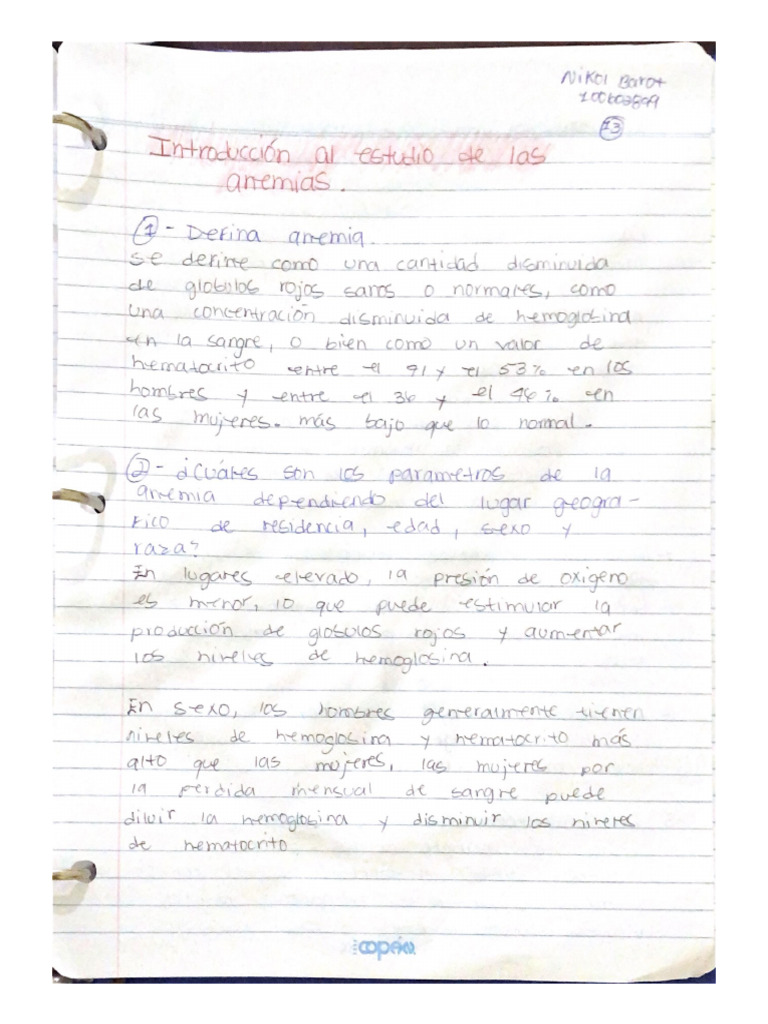 Nikol Barot
100602899
13
Introducción al estudio de las
anemias.
1 - Defina anemia.
se define como una cantidad disminuida
de globulos rojos sanos o normales, como
una concentración disminuida de hemoglobina
en la sangre, o bien como un valor de
hematocrito entre el 41 y el 53% en los
hombres y entre el 36 y el 46% en
las mujeres. más bajo que lo normal.
2 - ¿Cuáles son los parametros de la
anemia dependiendo del lugar geogra-
fico de residencia, edad, sexo y
raza?
En lugares elevado, la presión de oxigeno
es menor, lo que puede estimular la
producción de globulos rojos y aumentar
los niveles de hemoglobina.
En sexo, los hombres generalmente tienen
niveles de hemoglobina y hematocrito más
alto que las mujeres, las mujeres por
la perdida mensual de sangre puede
diluir la hemoglobina y disminuir los niveles
de hematocrito
copán